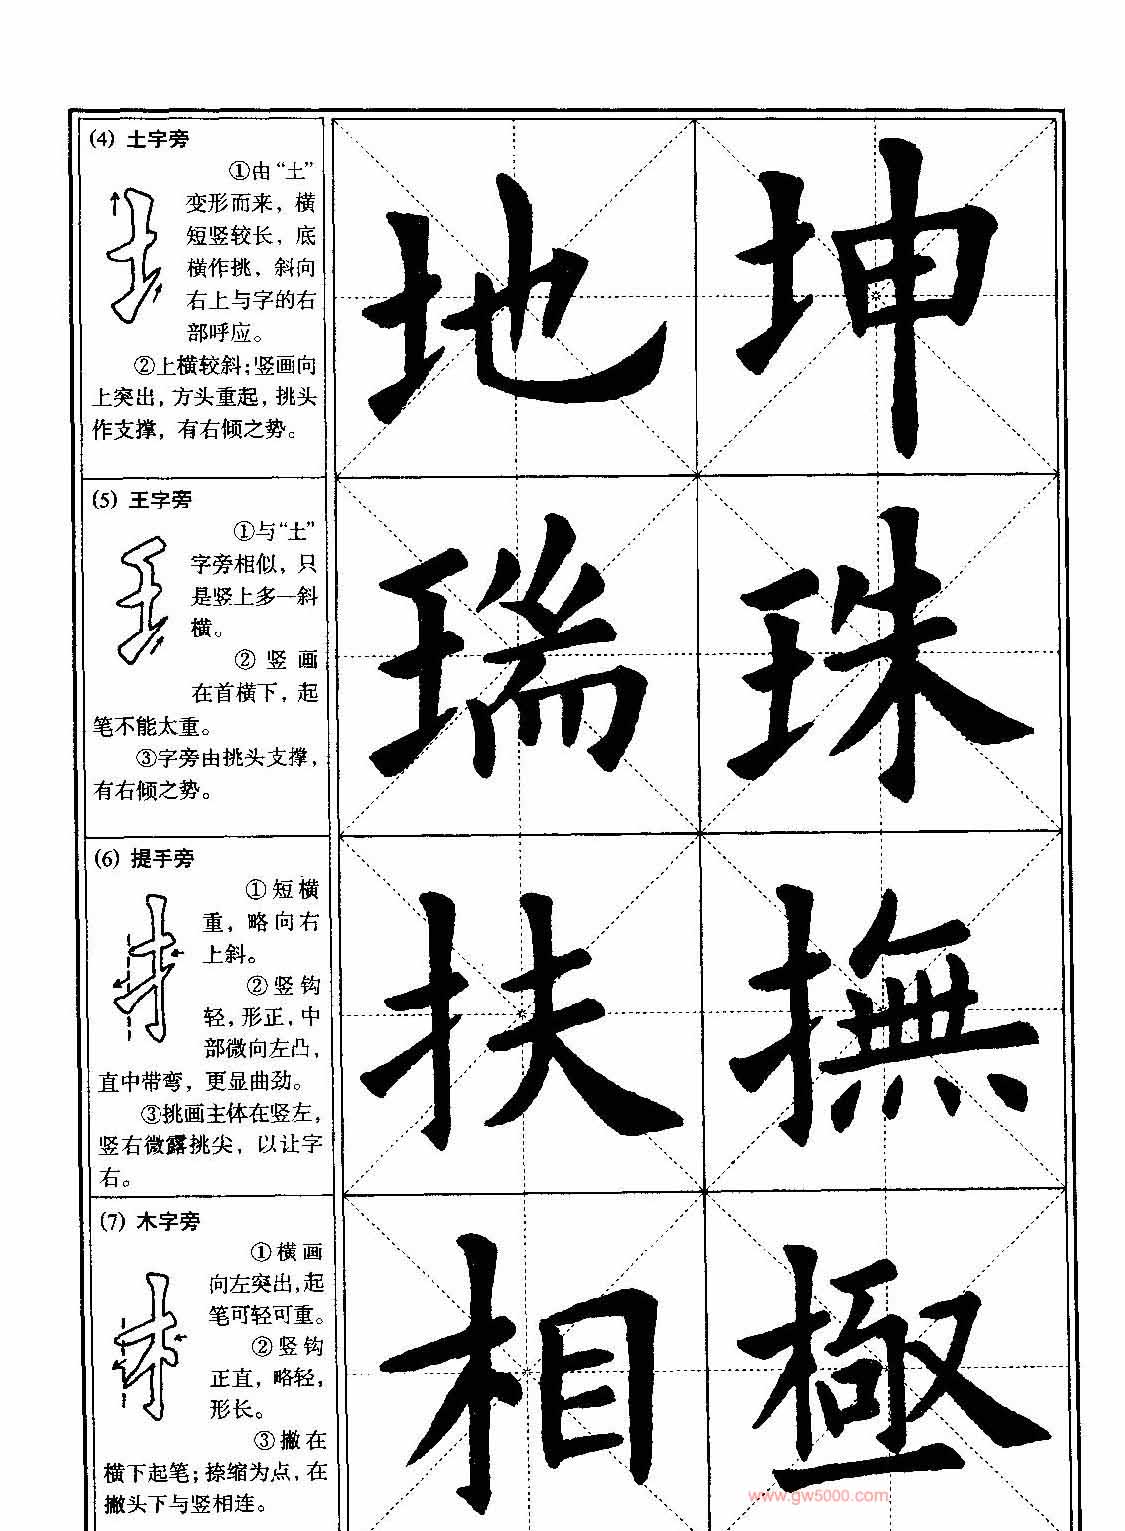 (4) 土字旁
①由“土”
变形而来，横
短竖较长，底
横作挑，斜向
右上与字的右
部呼应。
②上横较斜；竖画向
上突出，方头重起，挑头
作支撑，有右倾之势。
地 坤
(5) 王字旁
①与“土”
字旁相似，只
是竖上多一斜
横。
② 竖 画
在首横下，起
笔不能太重。
③字旁由挑头支撑，
有右倾之势。
瑞 珠
(6) 提手旁
①短横
重，略向右
上斜。
②竖钩
轻，形正，中
部微向左凸，
直中带弯，更显曲劲。
③挑画主体在竖左，
竖右微露挑尖，以让字
右。
扶 撫
(7) 木字旁
①横画
向左突出，起
笔可轻可重。
②竖钩
正直，略轻，
形长。
③撇在
横下起笔；捺缩为点，在
撇头下与竖相连。
相 極
www.gw5000.com